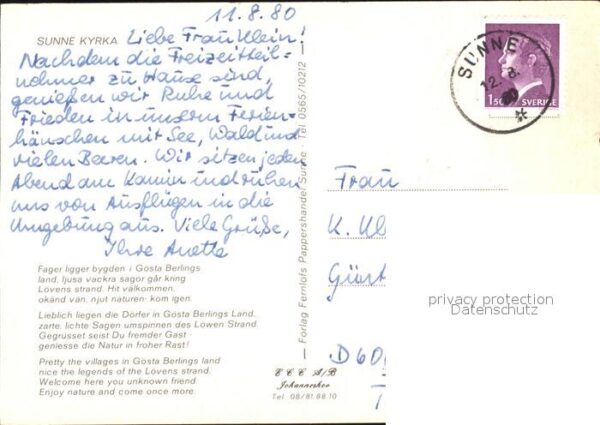 11.8.80
SUNNE KYRKA
Liebe Frau Klein!
Nachdem die Freizeitteil=
nehmer zu Hause sind,
genießen wir Ruhe und
Frieden in unserm Ferien=
häuschen mit See, Wald und
vielen Beeren. Wir sitzen jeden
Abend am Kamin und ruhen
uns von Ausflügen in die
Umgebung aus. Viele Grüße,
Ihre Anette
Fager ligger bygden i Gösta Berlings
land, ljusa vackra sagor går kring
Lövens strand. Hit välkommen,
okänd vän, njut naturen- kom igen.
Lieblich liegen die Dörfer in Gösta Berlings Land,
zarte, lichte Sagen umspinnen des Löwen Strand.
Gegrüsset seist Du fremder Gast -
geniesse die Natur in froher Rast!
Pretty the villages in Gösta Berlings land
nice the legends of the Lövens strand.
Welcome here you unknown friend
Enjoy nature and come once more.
— Förlag Fernlöfs Pappershandel Sunne - Tel 0565/10212 —
C C C A/B
Johanneshov
Tel. 08/81 88 10
SUNNE
12. 8.
80
150
SVERIGE
Frau
K. Kl
D60
privacy protection
Datenschutz